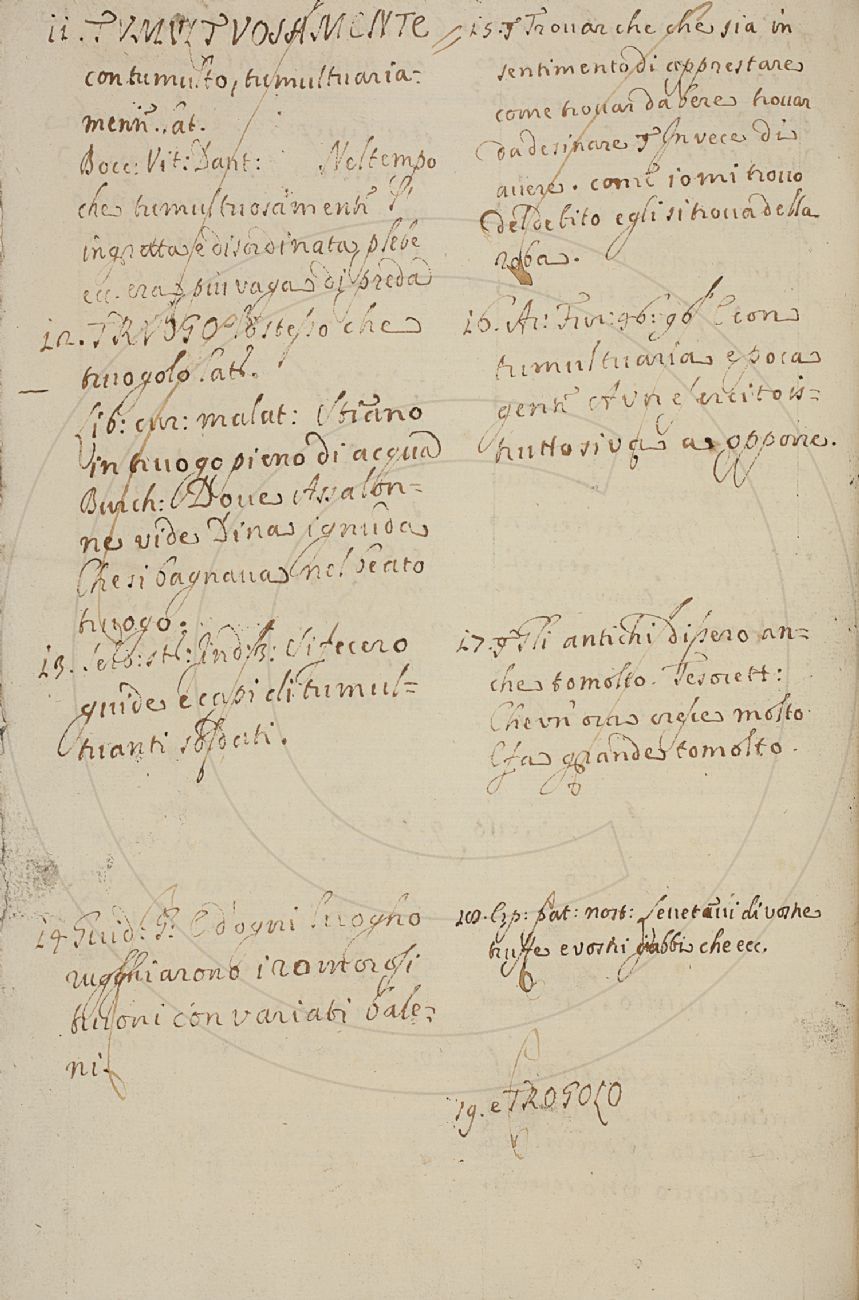 11. TVMVLTVOSAMENTE
con tumulto, tumultuaria=
ment. lat.
Bocc: Vit: Dant: Nel tempo
che tumultuosament
ingrata e disordinata plebe
ecc. era più vaga di preda
12. TRVOGO lo stesso che
truogolo lat.
Lib: cur: malat: Stiano
in truogo pieno di acqua
Burch: Dove Assalon=
ne vide Dina ignuda
Che si bagnava nel beato
truogo.
13. Seto: sto: Ind: 3: Si fecero
guide e capi di tumul=
tuanti soldati.
14. Guid: G. E d'ogni luogho
rugghiarono i romorosi
tuoni con variati bale=
ni.
15. Trovar che che sia in
sentimento di apprestare
come trovar da bere trovar
da desinare In vece di
avere. come io mi trovo
del debito egli si trova della
roba.
16. Ar: Fur: 96: 96 E con
tumultuaria e poca
gent A un esercito is=
trutto si va a oppone.
17. Gli antichi dissero an=
che tomolto. Tesorett:
Che un' ora cresce molto
E fa grande tomolto.
18. Esp: Pat: nost: Levetevi di vostre
truffe e vostri gabbi che ecc.
19. e TROGOLO